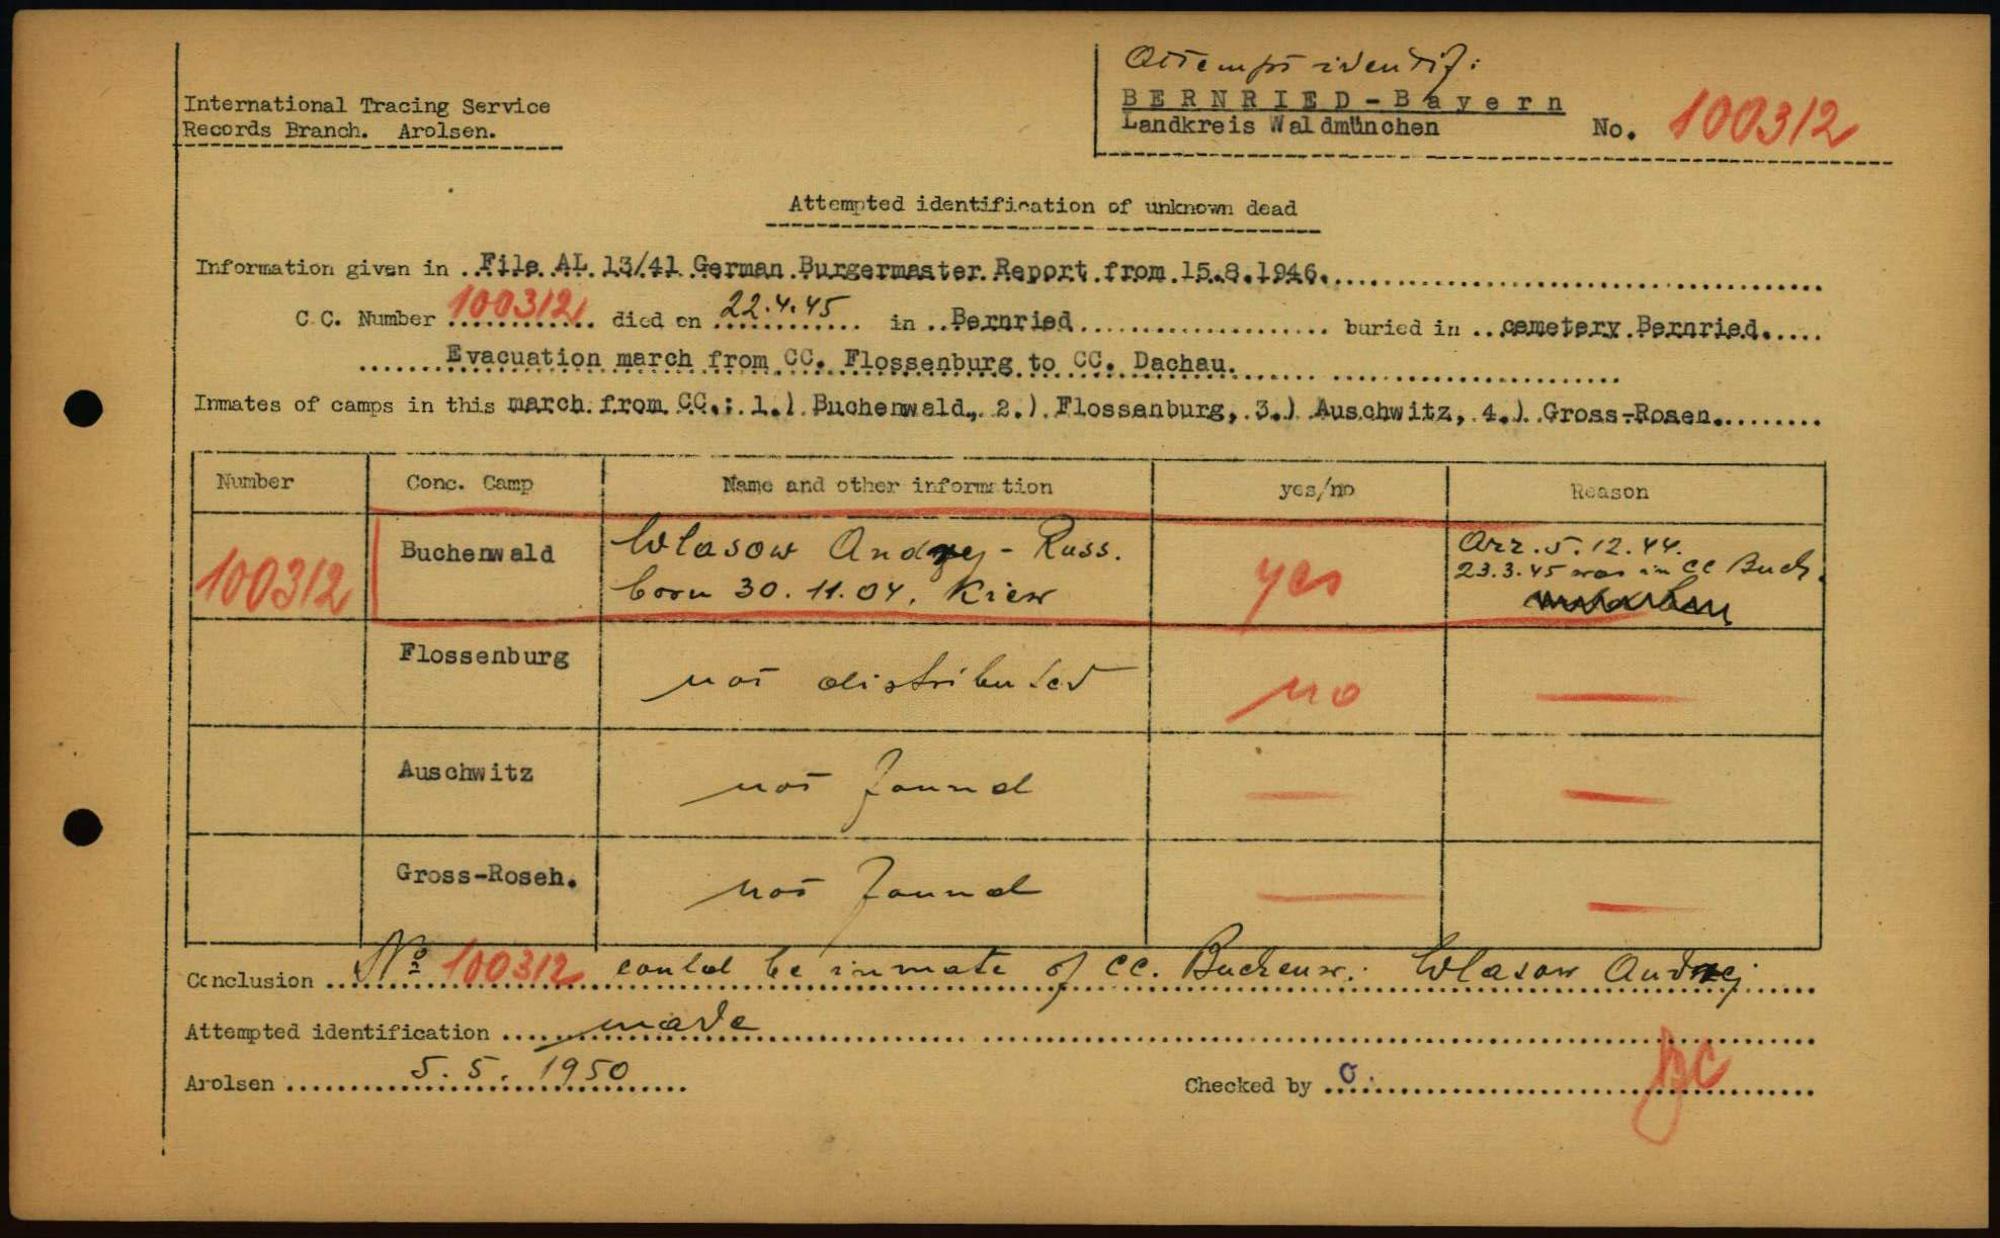 Attempt identif:
International Tracing Service
Records Branch. Arolsen.
BERNRIED-Bayern
Landkreis Waldmünchen No. 100312
Attempted identification of unknown dead
Information given in ..File AL 13/41 German Burgermaster Report from 15.8.1946.
C.C. Number 100312 died on 22.4.45 in ..Bernried buried in ...cemetery Bernried.
Evacuation march from CC. Flossenburg to CC. Dachau.
Inmates of camps in this march from CC.: 1.) Buchenwald, 2.) Flossenburg, 3.) Auschwitz, 4.) Gross-Rosen.
Number Conc. Camp Name and other information yes/no Reason
100312 Buchenwald Wlasow Andrej - Russ. yes Arr. 5.12.44.
born 30.11.04. Kiew 23.3.45 was in CC Buch.
Flossenburg not distributed no
Auschwitz not found
Gross-Roseh. not found
Conclusion No 100312 could be inmate of CC. Buchenw. Wlasow Andrej
Attempted identification made
Arolsen 5. 5. 1950 Checked by